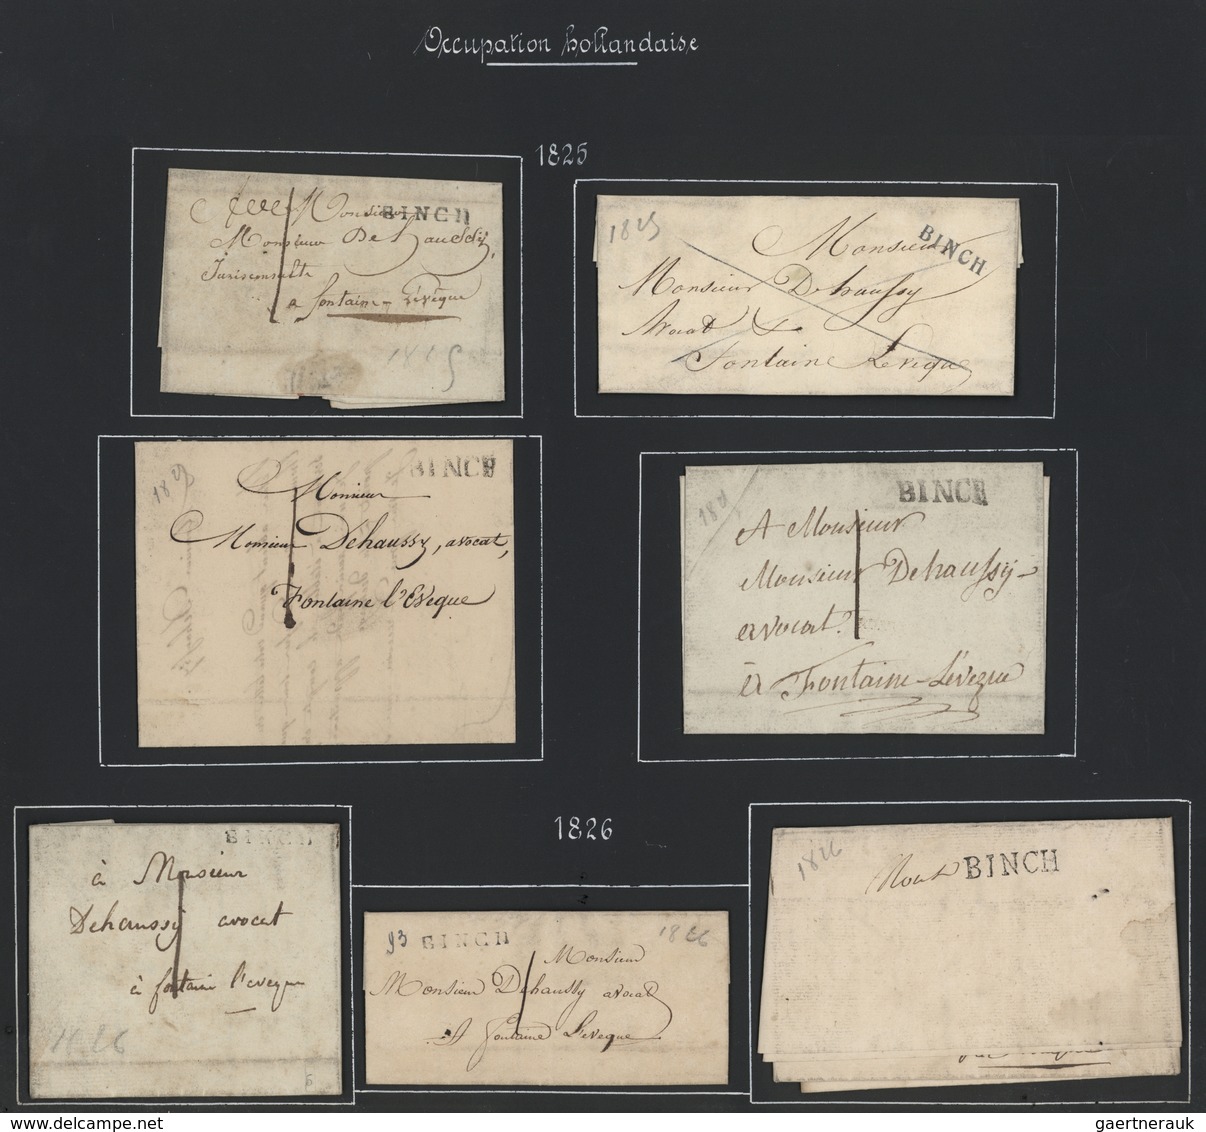 Occupation hollandaise
1825
BINCH
Monsieur
Monsieur Dehaussÿ,
Jurisconsulte
a fontaine-Lévêque
1825
1825
BINCH
Monsieur
Monsieur Dehaussy
Avocat &
Fontaine Leveque
1825
BINCH
Monsieur
Monsieur Déhaussy, avocat,
Fontaine l'Eveque
BINCH
A Monsieur
Monsieur Dehaussÿ-
avocat.
à Fontaine-Lévêque
1826
BINCH
à Monsieur
Dehaussy avocat
à fontaine l'eveque
1826
6
93 BINCH 1826
Monsieur
Monsieur Dehaussy avocat
A fontaine L'eveque
1826
BINCH
gaertnerauk@delcampe.net